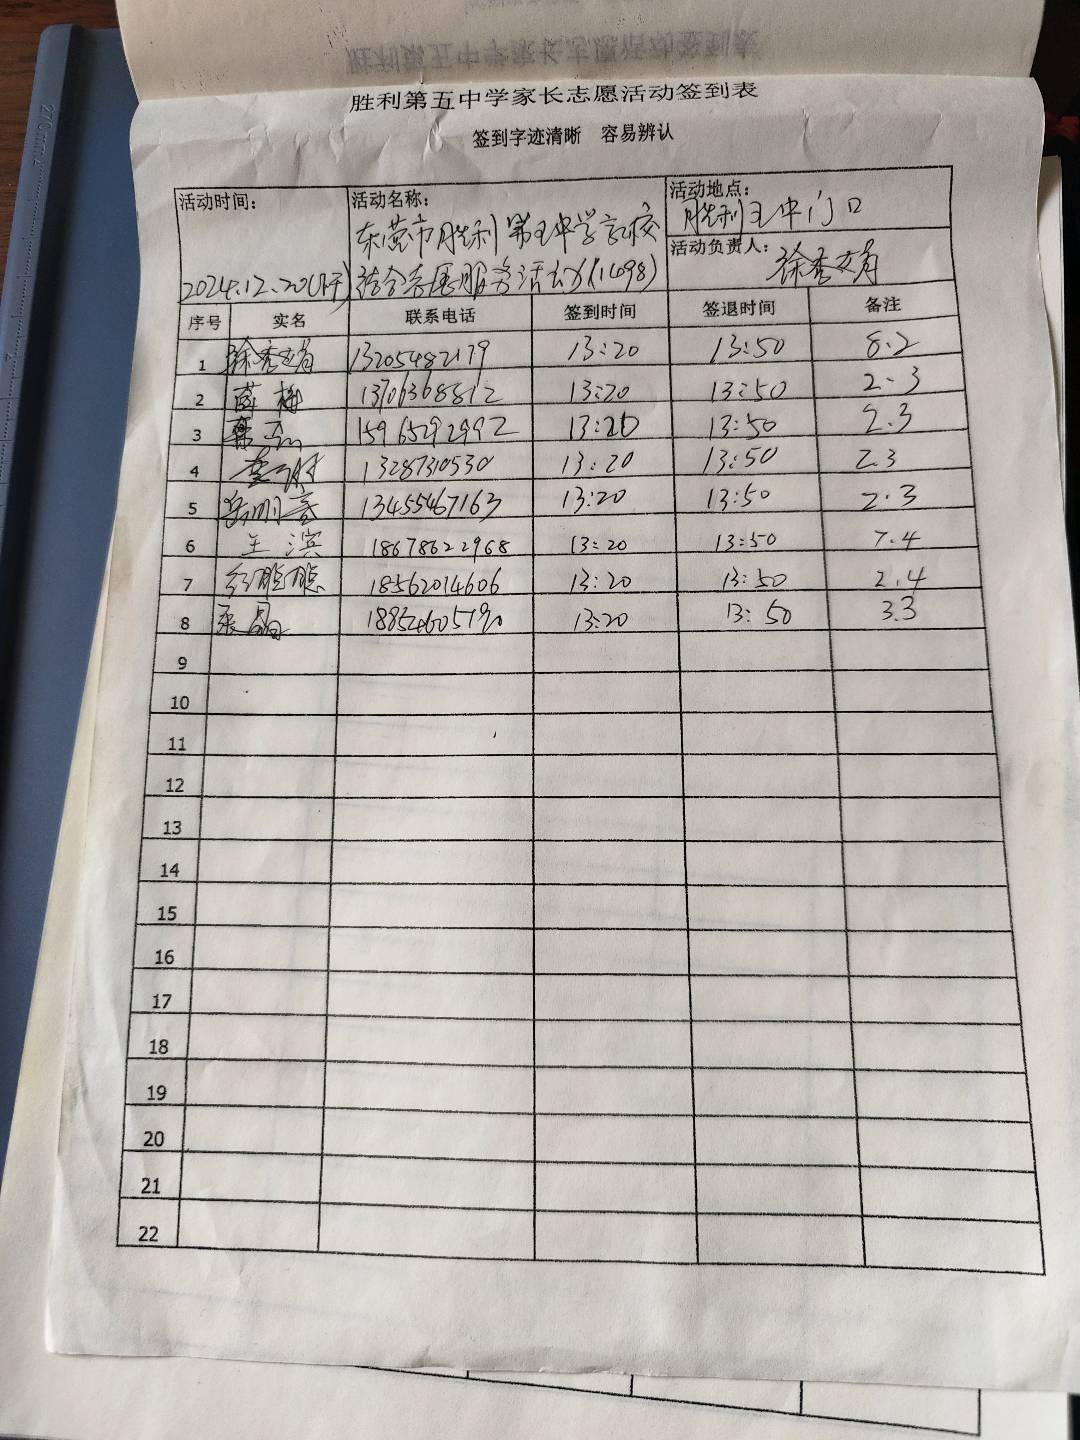 胜利第五中学家长志愿活动签到表
签到字迹清晰 容易辨认
活动时间: 2024.12.20(下午)
活动名称: 东营市胜利第五中学家校
结合志愿服务活动(1498)
活动地点: 胜利五中门口
活动负责人: 徐秀文
序号 实名 联系电话 签到时间 签退时间 备注
1 徐秀 13205482179 13:20 13:50 8.2
2 薛梅 13706368812 13:20 13:50 2.3
3 15965292992 13:20 13:50 2.3
4 李 13287310530 13:20 13:50 2.3
5 13455467163 13:20 13:50 2.3
6 王滨 18678622968 13:20 13:50 7.4
7 18562014606 13:20 13:50 2.4
8 张晶 18854605190 13:20 13:50 3.3
9
10
11
12
13
14
15
16
17
18
19
20
21
22